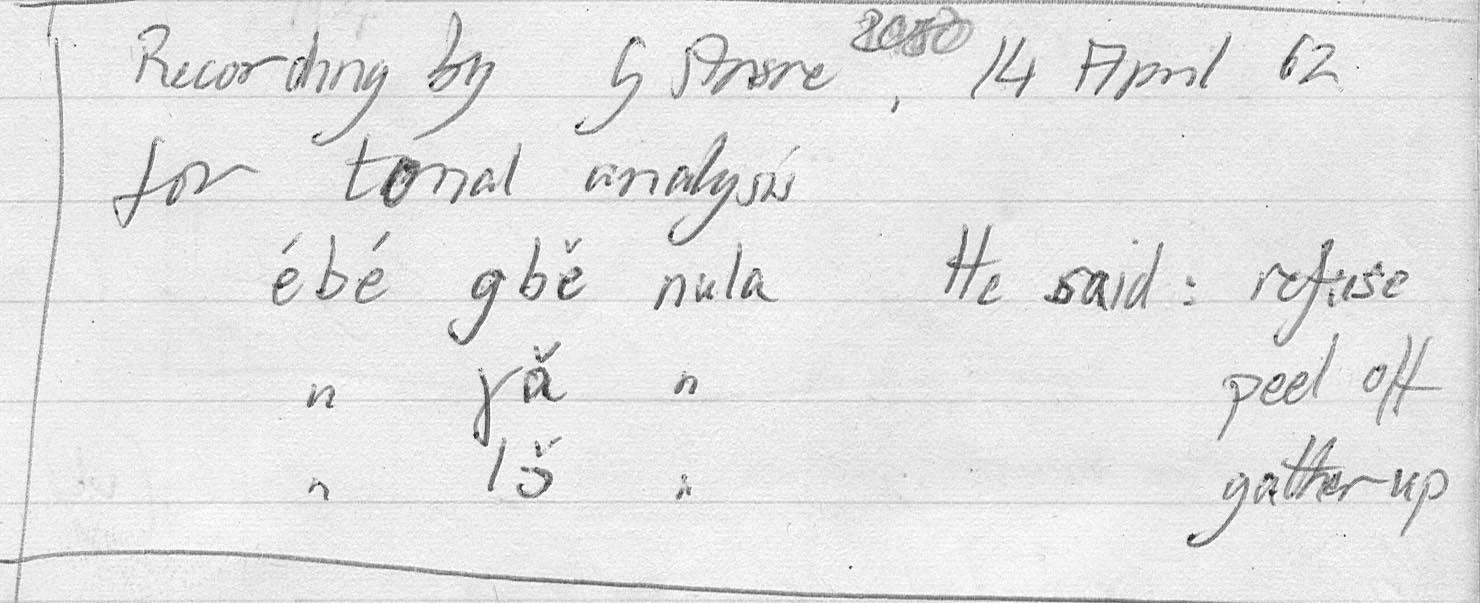 Recording by G Ansre, 14 April 62
for tonal analysis
ébé gbě nula He said : refuse
" ɣǎ " peel off
" lɔ̌ " gather up